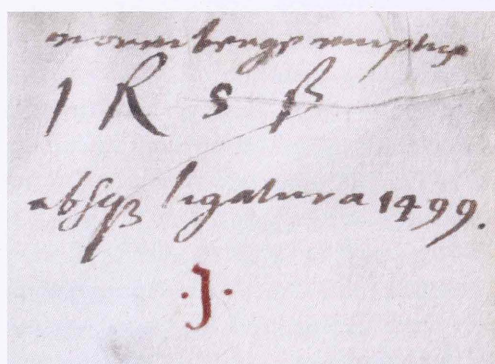 norenberge emptus
1 R 5 ß
absqꝫ ligatura 1499.
.J.